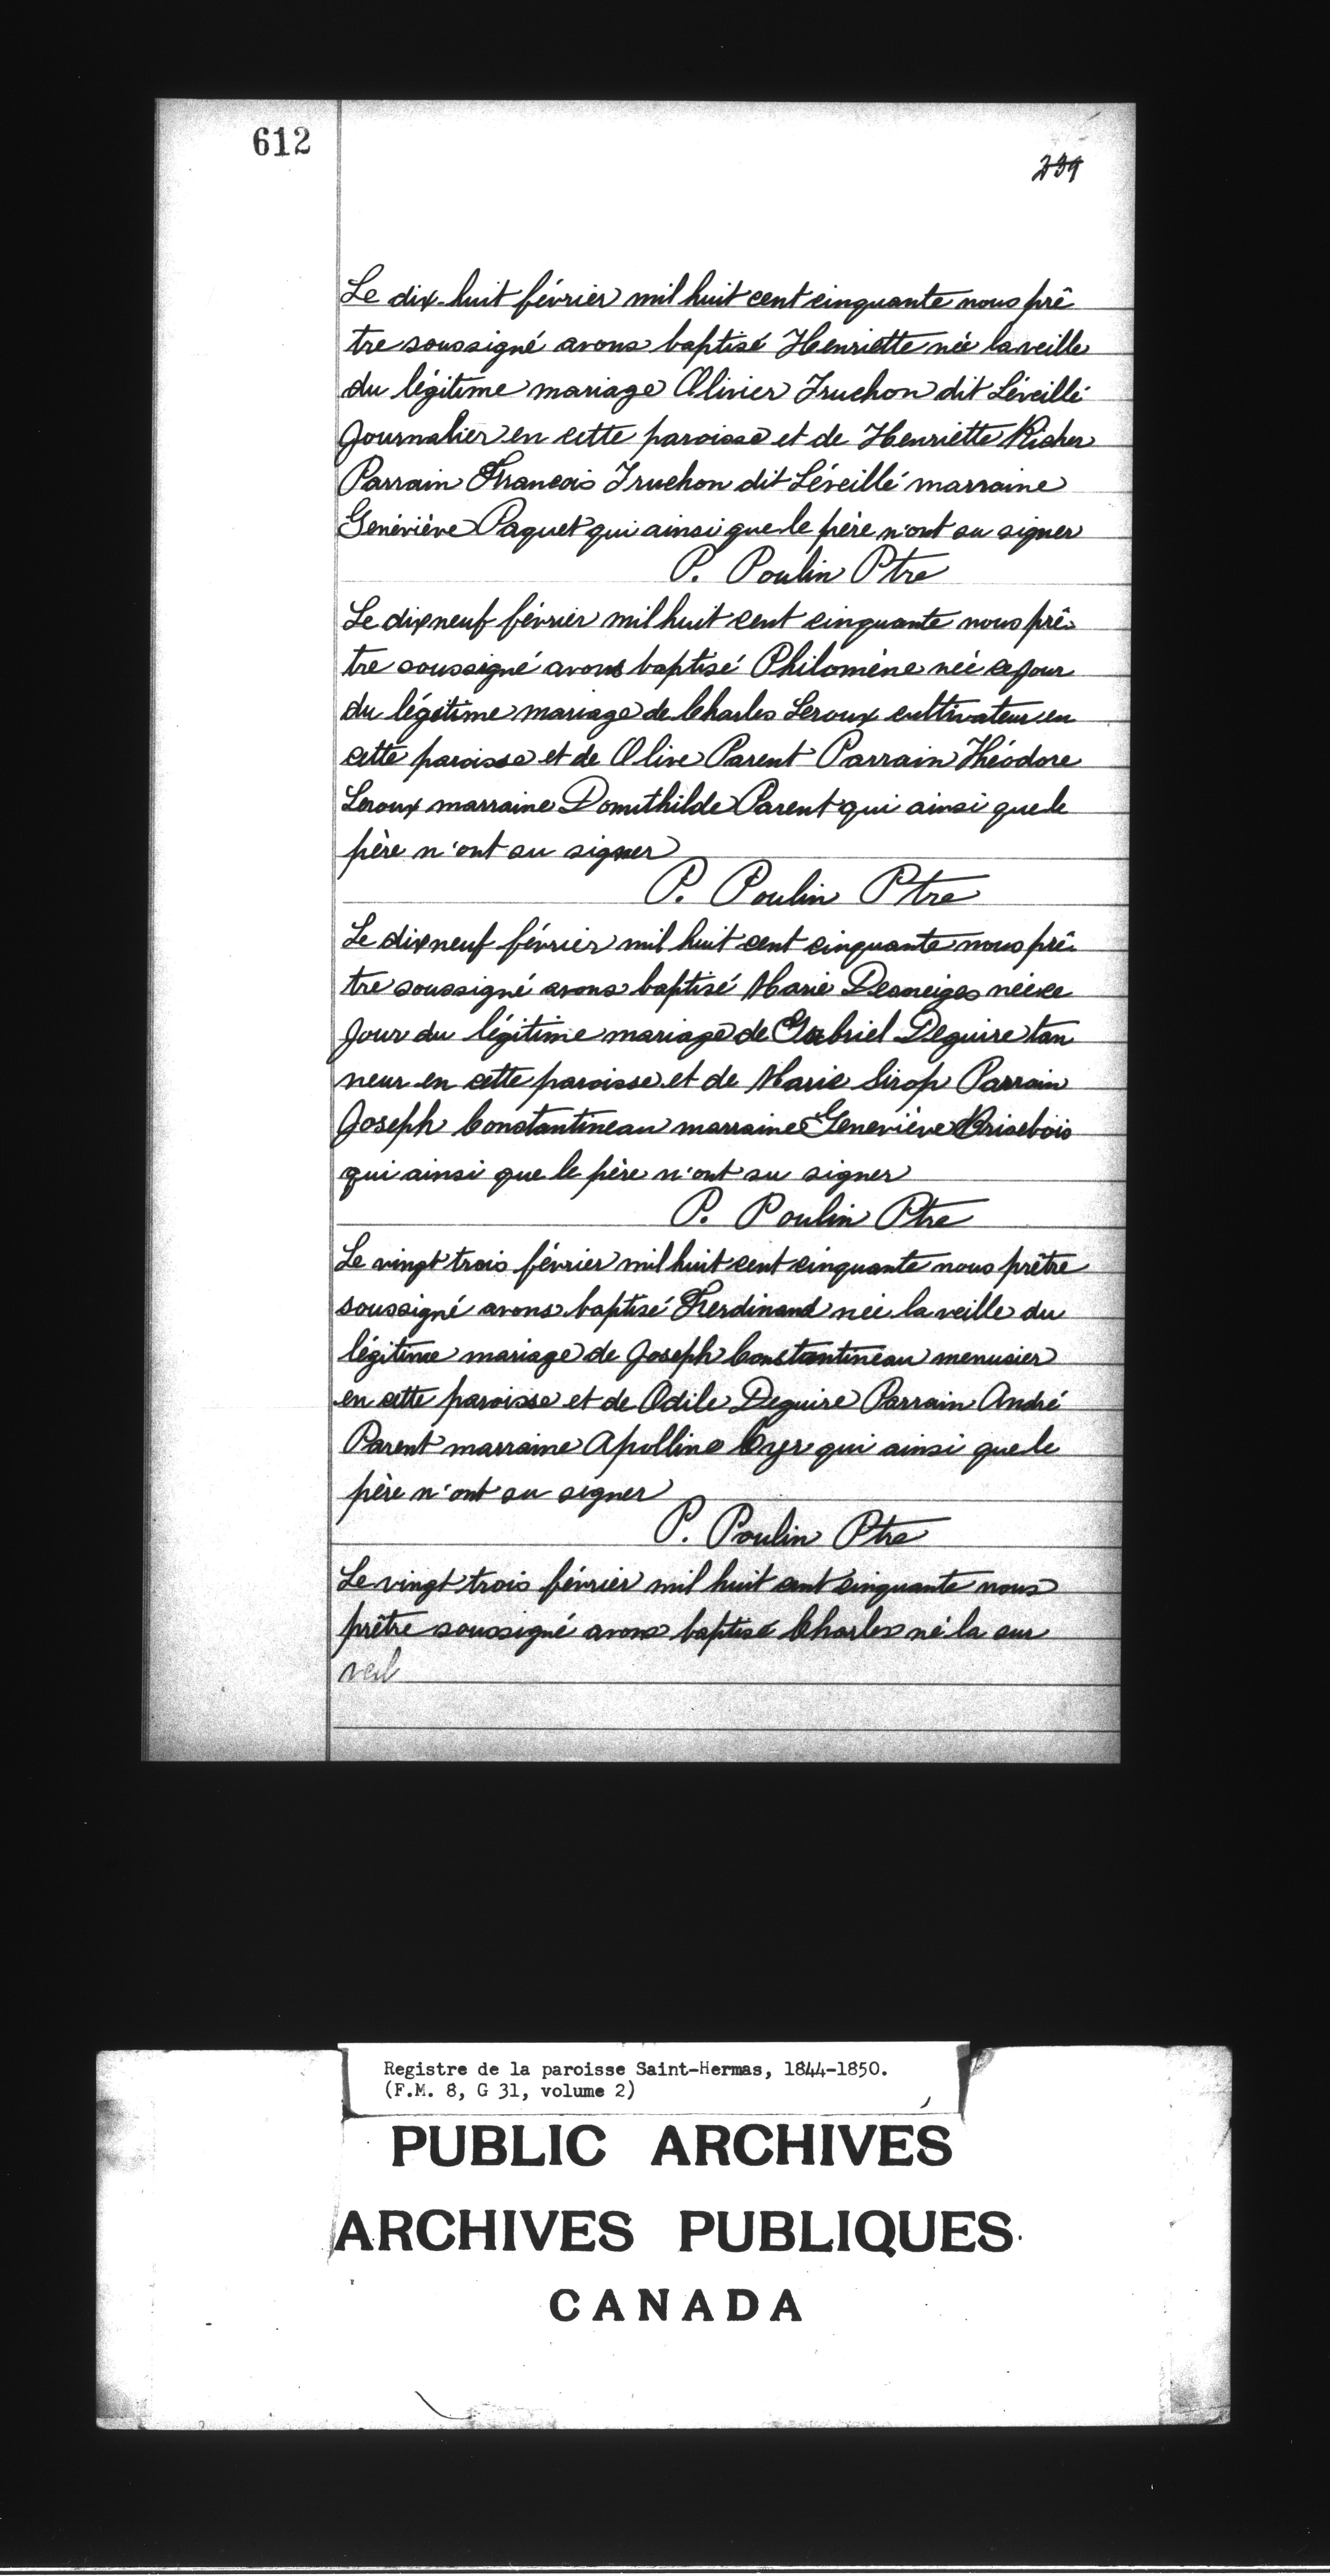 612
239
Le dix-huit février mil huit cent cinquante nous prê
tre soussigné avons baptisé Henriette née la veille
du légitime mariage Olivier Truchon dit Léveillé
Journalier en cette paroisse et de Henriette Richer
Parrain Francois Truchon dit Léveillé marraine
Genéviève Paquet qui ainsi que le père n'ont su signer
P. Poulin Ptre
Le dix neuf février mil huit cent cinquante nous prê-
tre soussigné avons baptisé Philomène née ce jour
du légitime mariage de Charles Leroux cultivateur en
cette paroisse et de Olive Parent Parrain Théodore
Leroux marraine Domithilde Parent qui ainsi que le
père n'ont su signer
P. Poulin Ptre
Le dix neuf février mil huit cent cinquante nous prê-
tre soussigné avons baptisé Marie Desneiges née ce
Jour du légitime mariage de Gabriel Deguire tan
neur en cette paroisse et de Marie Sirop Parrain
Joseph Constantineau marraine Geneviève Brisebois
qui ainsi que le père n'ont su signer
P. Poulin Ptre
Le vingt trois février mil huit cent cinquante nous prêtre
soussigné avons baptisé Ferdinand née la veille du
légitime mariage de Joseph Constantineau menusier
en cette paroisse et de Odile Deguire Parrain André
Parent marraine Apolline Cyer qui ainsi que le
père n'ont su signer
P. Poulin Ptre
Le vingt trois février mil huit cent cinquante nous
prêtre soussigné avons baptisé Charles né la sur
veil
Registre de la paroisse Saint-Hermas, 1844-1850.
(F.M. 8, G 31, volume 2)
PUBLIC ARCHIVES
ARCHIVES PUBLIQUES
CANADA